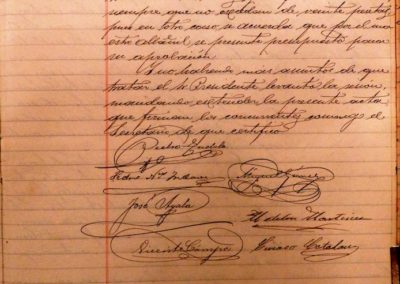 siempre que no excedan de veinte pesetas,
pues en otro caso se acuerda que por el
este se presente presupuesto para
su aprobación.
Y no habiendo más asuntos de que
tratar el Sr Presidente levantó la sesión,
mandando extender la presente acta
que firman los concurrentes conmigo el
Secretario de que certifico.
Pedro
José Ayala
Vicente Campo Catalan